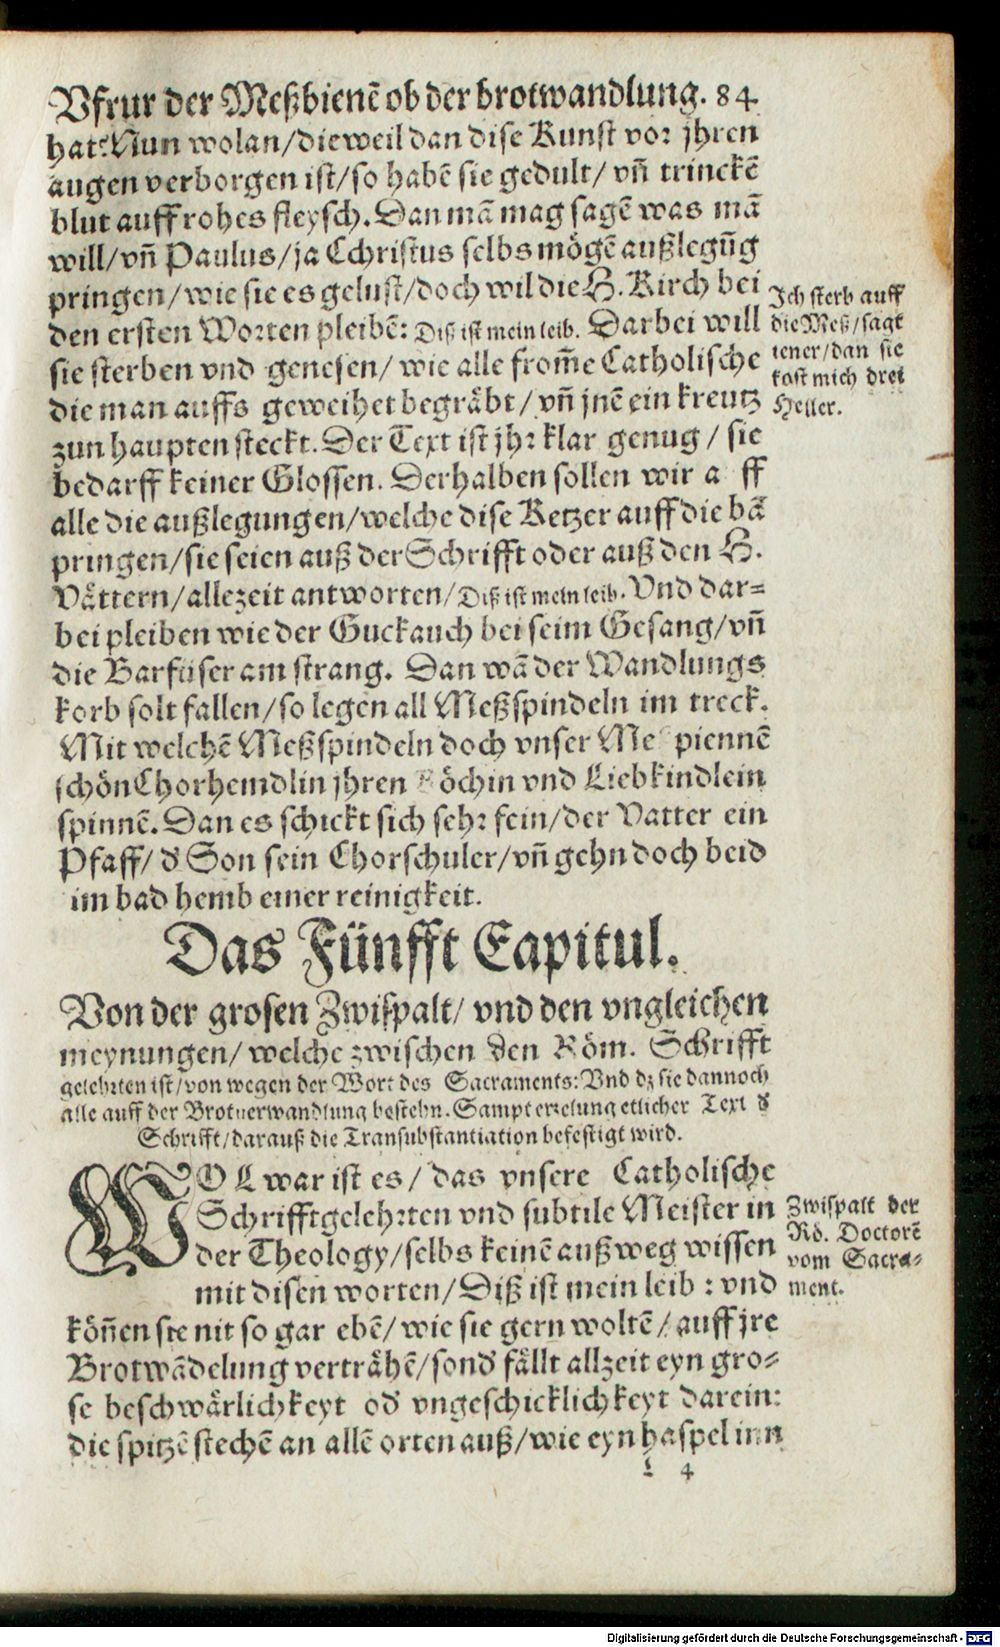 Vfrur der Meßbienẽ ob der brotwandlung. 84
hat? Nun wolan/dieweil dan dise Kunst vor jhren
augen verborgen ist/so habẽ sie gedult/ vñ trinckẽ
blut auff rohes fleysch. Dan mã mag sagẽ was mã
will/vñ Paulus/ja Cchristus selbs mögẽ außlegũg
pringen/wie sie es gelust/doch wil die H. Kirch bei
den ersten Worten pleibẽ: Diß ist mein leib. Darbei will
sie sterben vnd genesen/ wie alle from̃e Catholische
die man auffs geweihet begräbt/vñ jnẽ ein kreutz
zun haupten steckt. Der Text ist jhr klar genug / sie
bedarff keiner Glossen. Derhalben sollen wir a ff
alle die außlegungen/welche dise Ketzer auff die bã
pringen/sie seien auß der Schrifft oder auß den H.
Vättern/allezeit antworten/Diß ist mein leib. Vnd dar=
bei pleiben wie der Guckauch bei seim Gesang/vñ
die Barfüser am strang. Dan wã der Wandlungs
korb solt fallen/so legen all Meßspindeln im treck.
Mit welchẽ Meßspindeln doch vnser Me piennẽ
schön Chorhemdlin jhren Köchin vnd Liebkindlein
spinnẽ. Dan es schickt sich sehr fein/der Vatter ein
Pfaff/ď Son sein Chorschuler/vñ gehn doch beid
im bad hemb einer reinigkeit.
Ich sterb auff
die Meß/sagt
iener/dan sie
kost mich drei
Heller.
Das Fünfft Capitul.
Von der grosen Zwispalt/ vnd den vngleichen
meynungen/ welche zwischen den Röm. Schrifft
gelehrten ist/von wegen der Wort des Sacraments: Vnd dz sie dannoch
alle auff der Brotuerwandlung bestehn. Sampt erzelung etlicher Text ď
Schrifft/darauß die Transubstantiation befestigt wird.
WOL war ist es/ das vnsere Catholische
Schrifftgelehrten vnd subtile Meister in
der Theology/selbs keinẽ außweg wissen
mit disen worten/Diß ist mein leib : vnd
köñen sie nit so gar ebẽ/ wie sie gern woltẽ / auff jre
Brotwãdelung verträhẽ/sonď fällt allzeit eyn gro=
se beschwärlichkeyt oď vngeschicklichkeyt darein:
die spitzẽ stechẽ an allẽ orten auß/wie eyn haspel inn
Zwispalt der
Rö. Doctorẽ
vom Sacra=
ment.
L 4
Digitalisierung gefördert durch die Deutsche Forschungsgemeinschaft - DFG